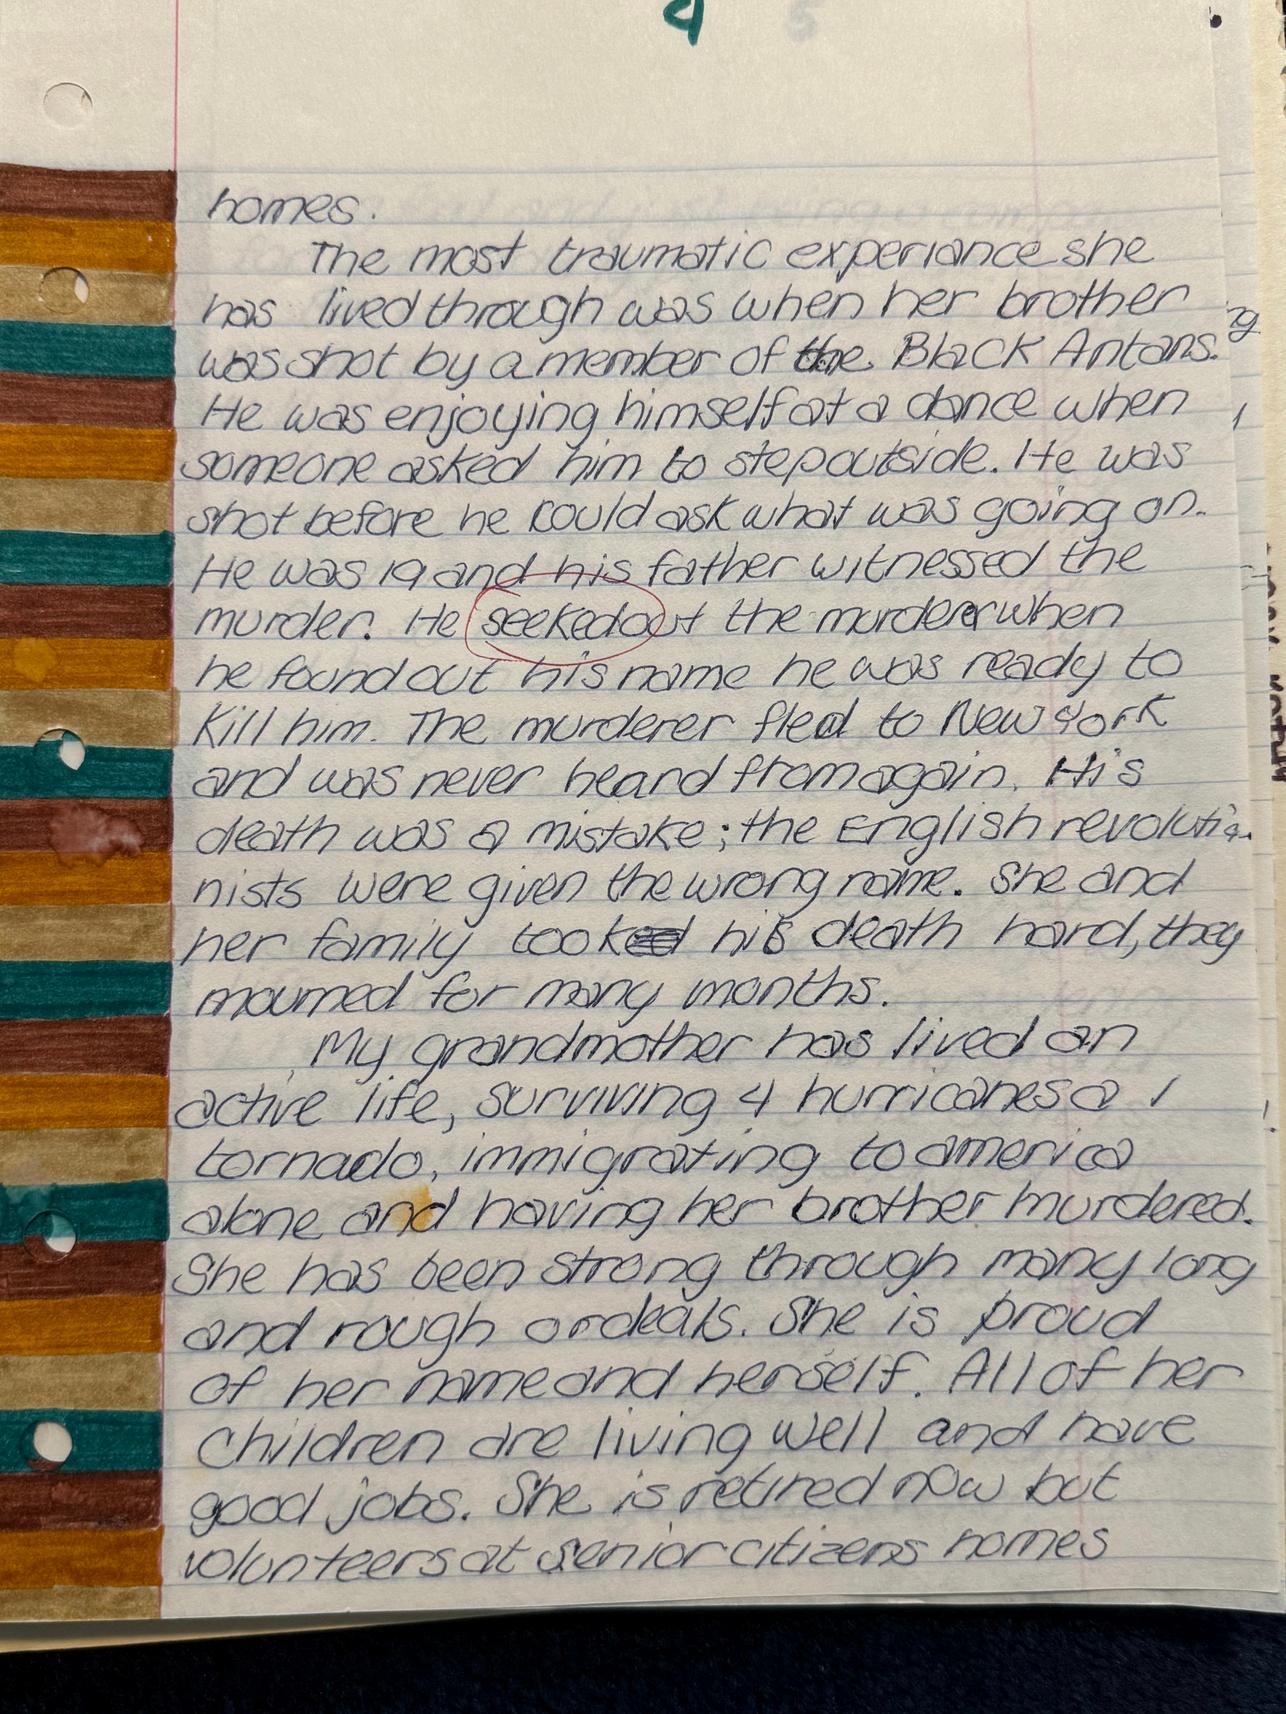 4
homes.
The most traumatic experiance she
has lived through was when her brother
was shot by a member of the Black Antans.
He was enjoying himself at a dance when
someone asked him to step outside. He was
shot before he could ask what was going on.
He was 19 and his father witnessed the
murder. He seeked out the murderer when
he found out his name he was ready to
kill him. The murderer fled to New York
and was never heard from again. His
death was a mistake; the English revolutio-
nists were given the wrong name. She and
her family took his death hard, they
mourned for many months.
My grandmother has lived an
active life, surviving 4 hurricanes a 1
tornado, immigrating to america
alone and having her brother murdered.
She has been strong through many long
and rough ordeals. She is proud
of her name and herself. All of her
children are living well and have
good jobs. She is retired now but
volunteers at senior citizens homes